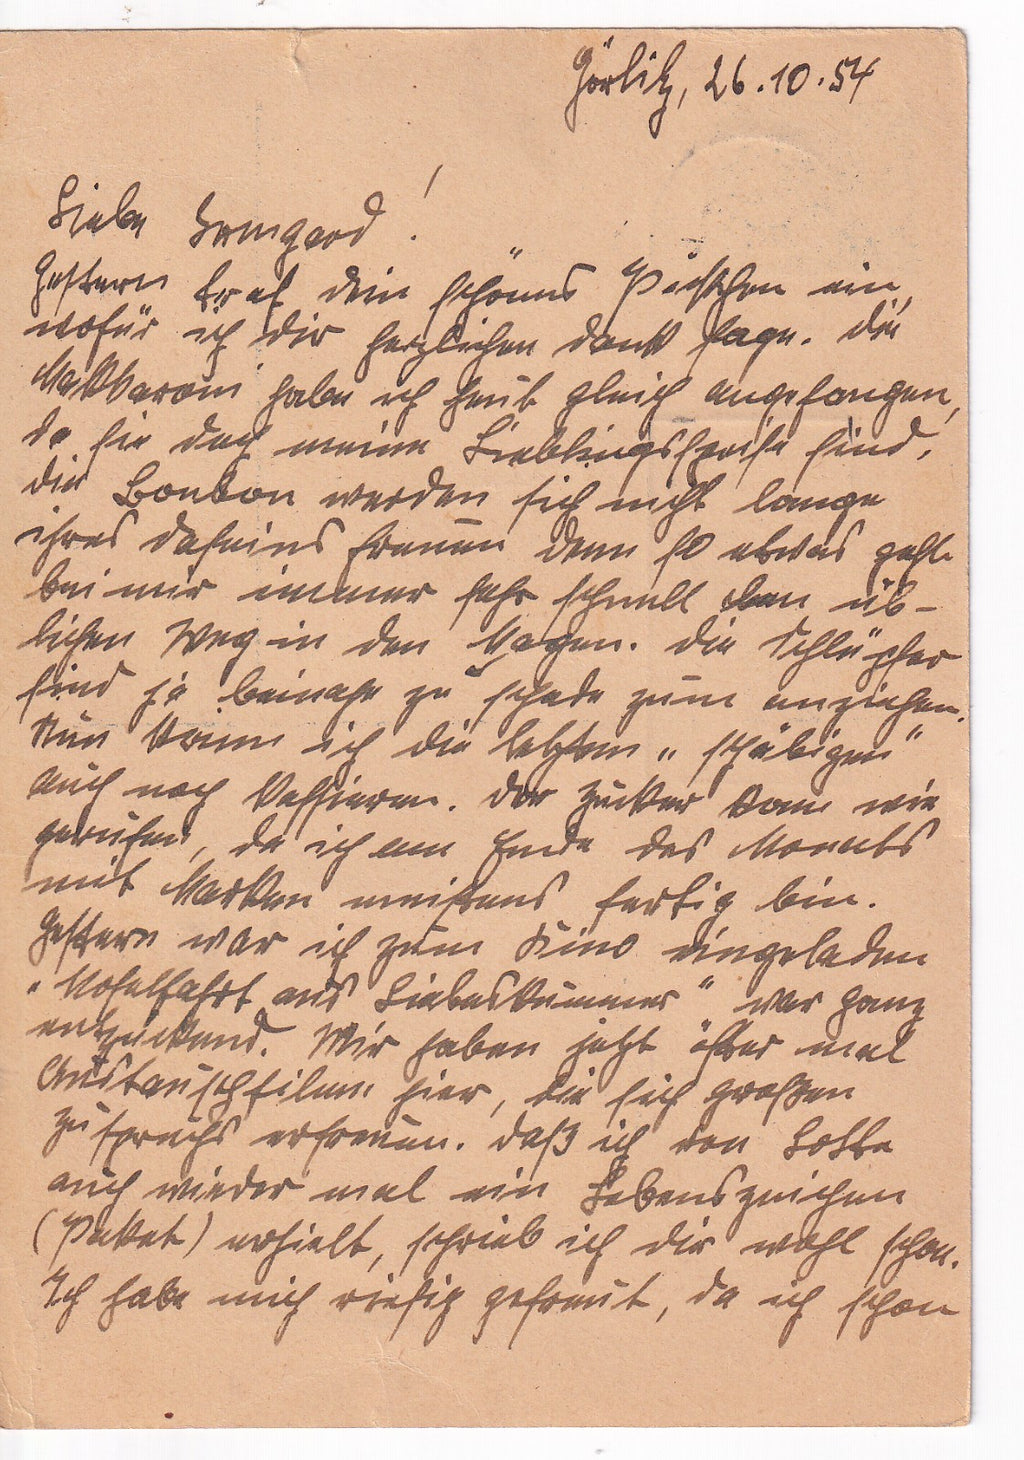 Görlitz, 26.10.54
Liebe Irmgard!
Gestern traf dein schönes Päckchen ein,
wofür ich dir herzlichen dank sage. die
Makkaroni habe ich heut gleich angefangen,
da sie doch meine Lieblingsspeise sind.
die Bonbon werden sich nicht lange
ihres daseins freuen denn so etwas geht
bei mir immer sehr schnell den üb-
lichen Weg in den Magen. die Schlüpfer
sind ja beinahe zu schade zum anziehen.
Nun kann ich die letzten „schäbigen"
auch noch kassieren. der Zucker kam wie
gerufen, da ich am Ende des Monats
mit Marken meistens fertig bin.
Gestern war ich zum Kino eingeladen
„Moselfahrt aus Liebeskummer" war ganz
entzückend. Wir haben jetzt öfter mal
Austauschfilme hier, die sich großen
Zuspruchs erfreuen. daß ich von Lotte
auch wieder mal ein Lebenszeichen
(Paket) erhielt, schrieb ich dir wohl schon.
Ich habe mich riesig gefreut, da ich schon